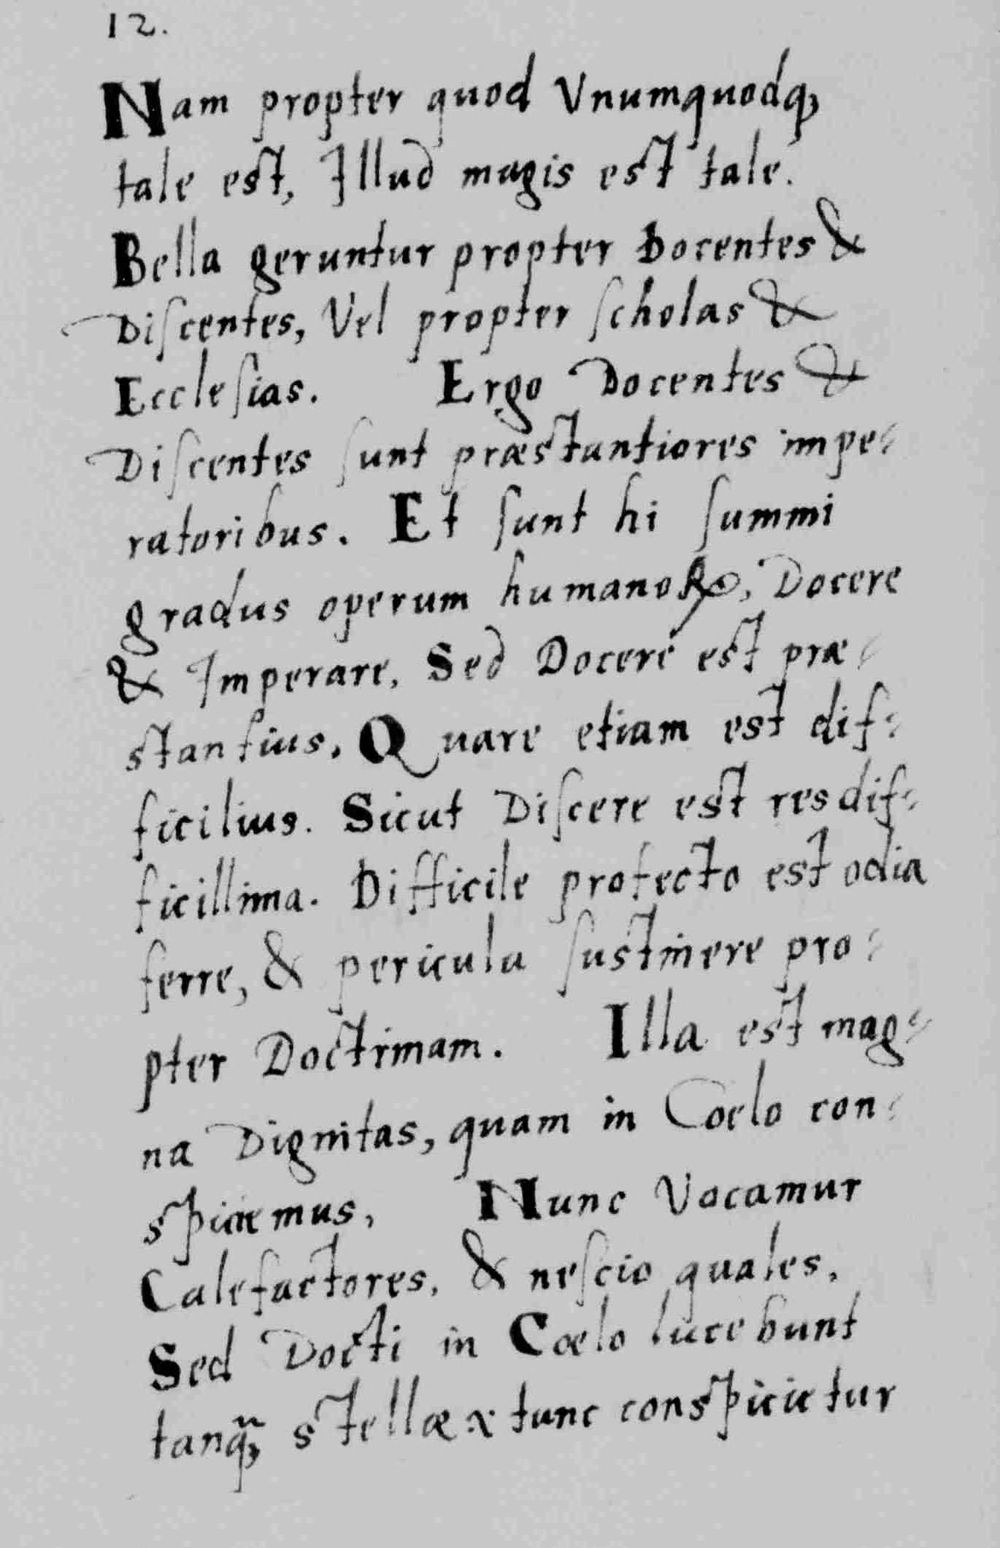 12.
Nam propter quod Vnumquodq;
tale est, Illud magis est tale.
Bella geruntur propter Docentes &
Discentes, Vel propter scholas &
Ecclesias. Ergo Docentes &
Discentes sunt præstantiores impe-
ratoribus. Et sunt hi summi
gradus operum humanoꝝ, Docere
& Imperare. Sed Docere est præ-
stantius. Quare etiam est dif-
ficilius. Sicut Discere est res dif-
ficillima. Difficile profecto est odia
ferre, & pericula sustinere pro-
pter Doctrinam. Illa est mag-
na Dignitas, quam in Coelo con-
spiciemus, Nunc Vocamur
Calefactores, & nescio quales,
Sed Docti in Cœlo lucebunt
tanq̃; stellæ & tunc conspicietur